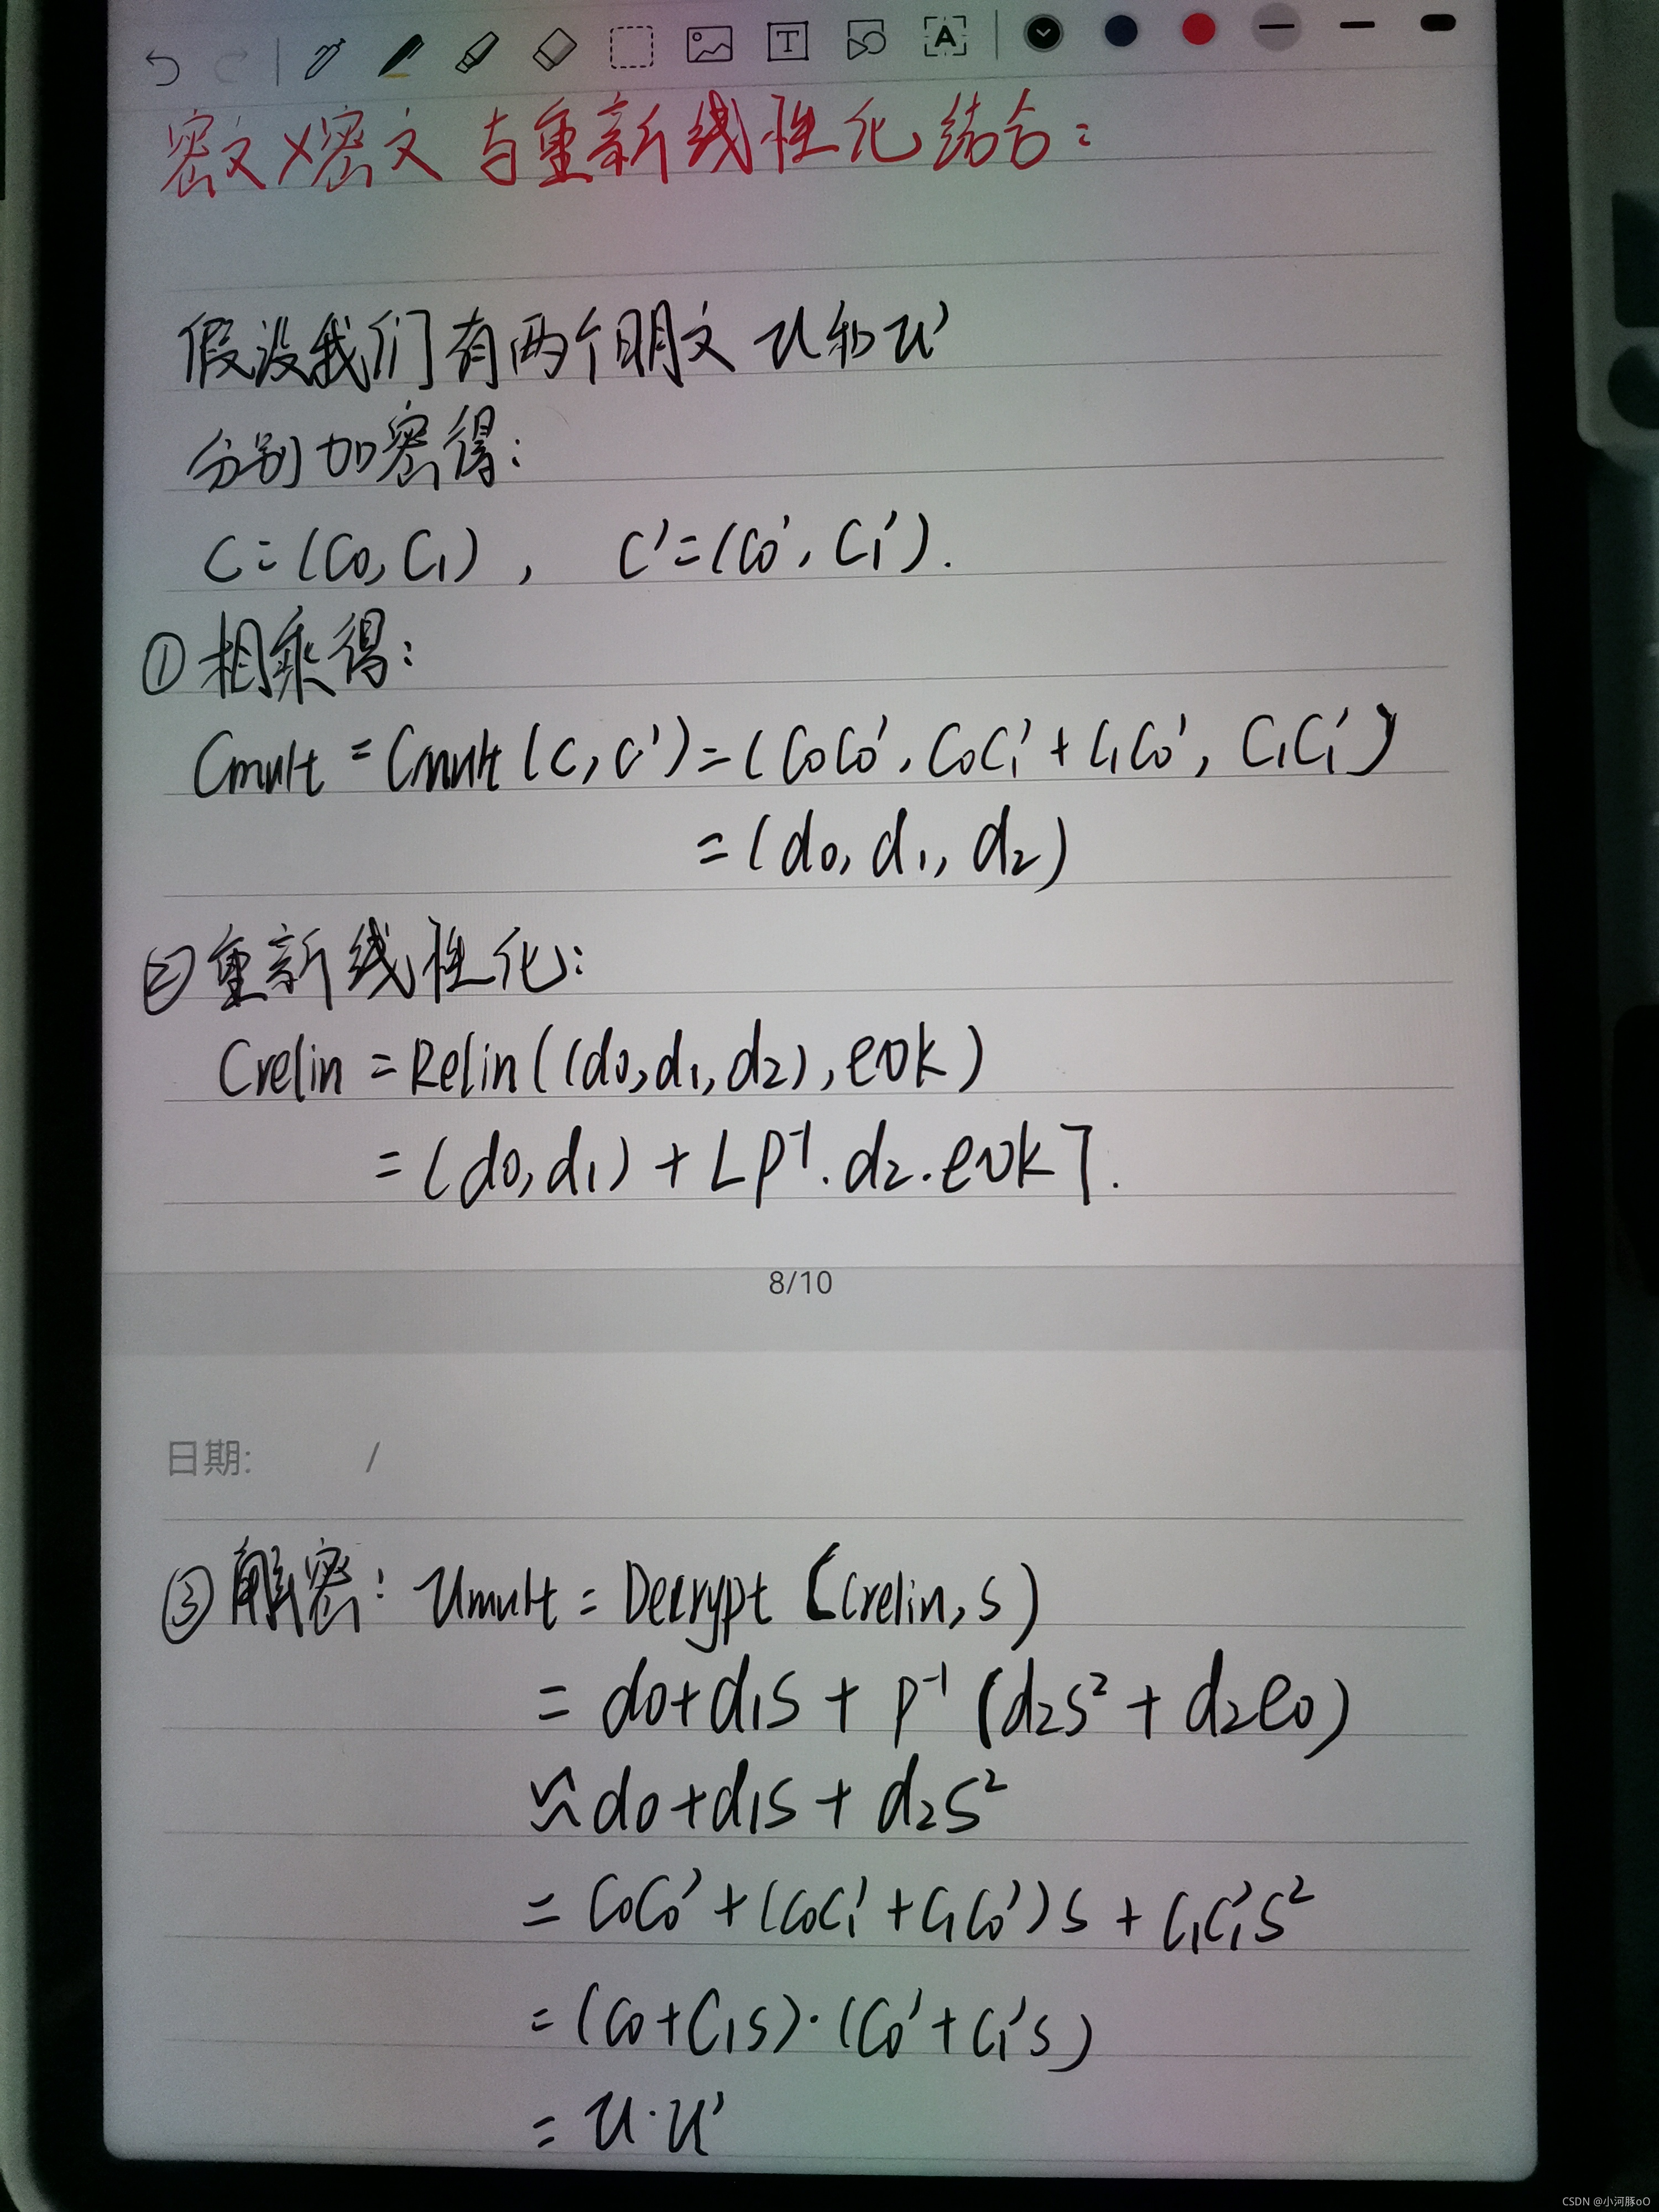 密文×密文 与重新线性化结合:
假设我们有两个明文 u和u'
分别加密得:
C=(C0,C1), C'=(C0',C1').
①相乘得:
Cmult=Cmult(C,C')=(C0C0',C0C1'+C1C0',C1C1')
=(d0,d1,d2)
②重新线性化:
Crelin=Relin((d0,d1,d2),evk)
=(d0,d1)+⌊P⁻¹·d2·evk⌉.
8/10
日期: /
③解密:Umult=Decrypt(Crelin,s)
=d0+d1s+P⁻¹(d2s²+d2e0)
≈d0+d1s+d2s²
=C0C0'+(C0C1'+C1C0')s+C1C1's²
=(C0+C1s)·(C0'+C1's)
=u·u'
CSDN @小河豚oO